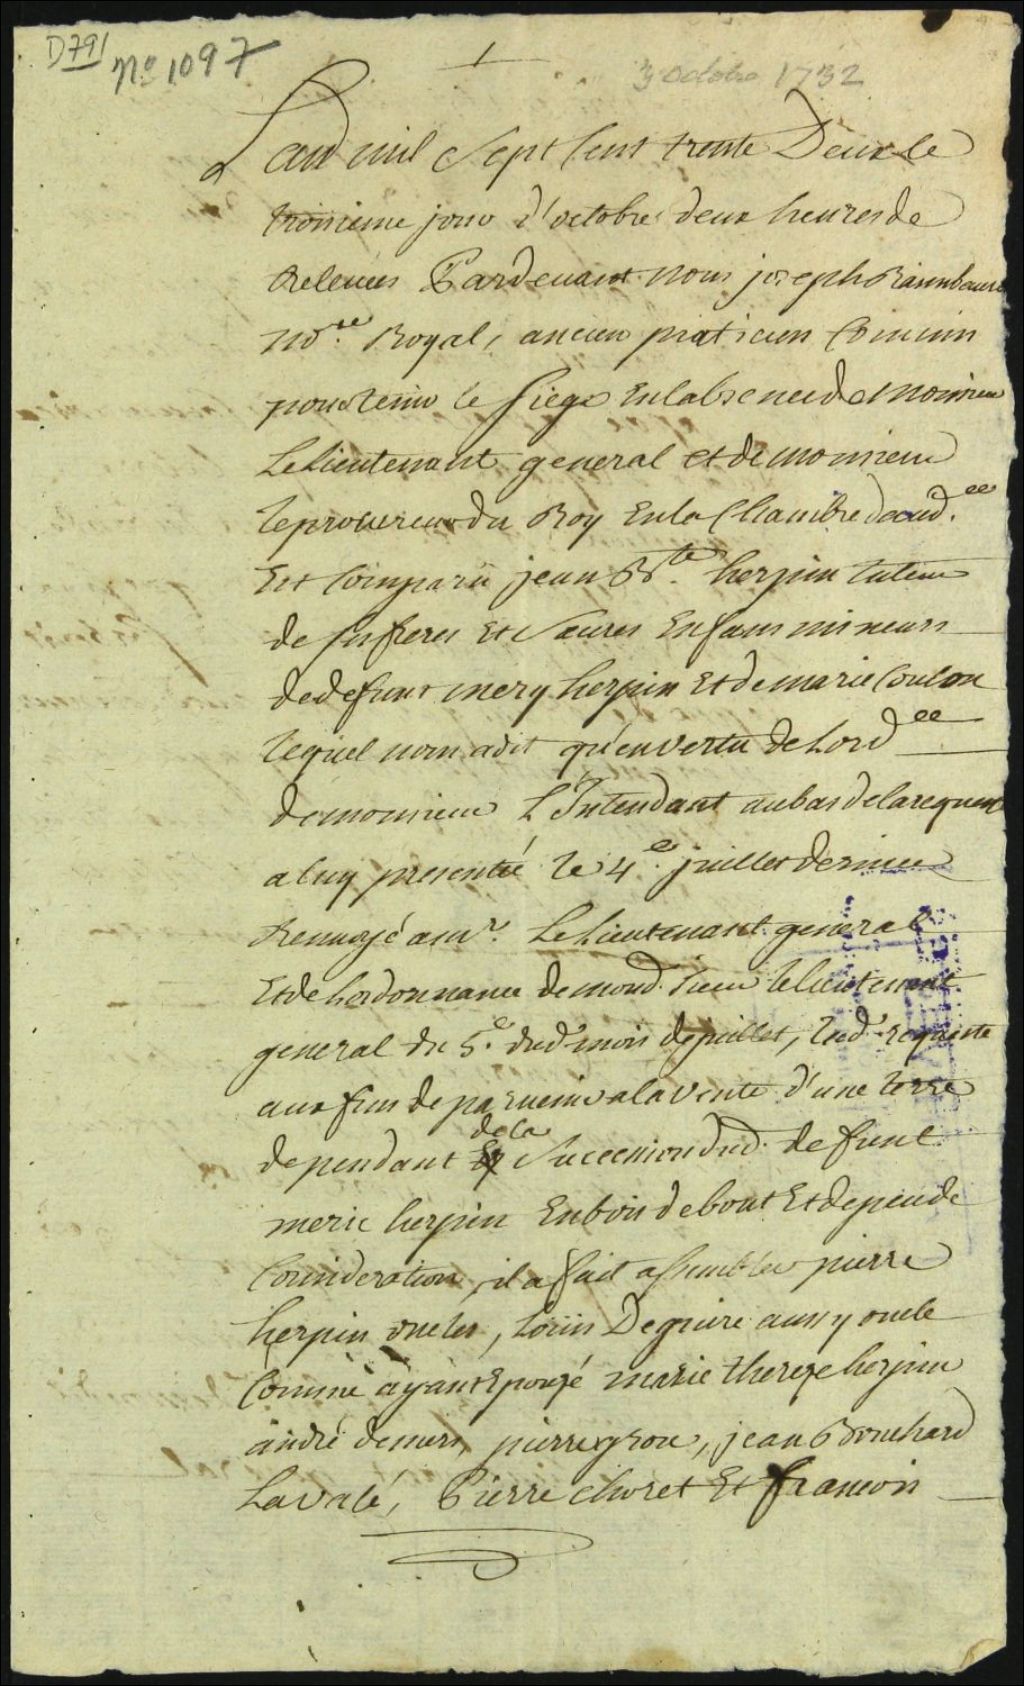 D791
No 1097
3 Octobre 1732
Lan mil Sept Cent trente Deux le
troisieme jour d'octobre deux heures de
Relevées Pardevant nous joseph Raimbault
Nore. Royal, ancien praticien Commis
pour tenir le siege En labsence de Monsieur
Le Lieutenant general et de monsieur
le procureur du Roy En la Chambre daudce.
Est Comparu jean Bte. herpin tuteur
de ses freres Et Sœurs Enfans mineurs
de defunt mery herpin Et de marie Coulon
lequel nous a dit qu'en vertu de Lordce
de monsieur L'Intendant au bas de la requeste
a luy presentée le 4e. juillet dernier
Renvoyé a mr. Le Lieutenant general
Et de Lordonnance de mond. Sieur le lieutenant
general du 5e. dud. mois de juillet, lad. requeste
aux fins de parvenir a la vente d'une terre
dependant de la Succession dud. defunt
meric herpin En bois debout Et de peu de
Consideration, il a fait assembler pierre
herpin oncle, Louis Degniere aussy oncle
Comme ayant Epouzé marie thereze herpin
andré demers, pierre grou, jean Bouchard
Lavalé, Pierre choret Et francois